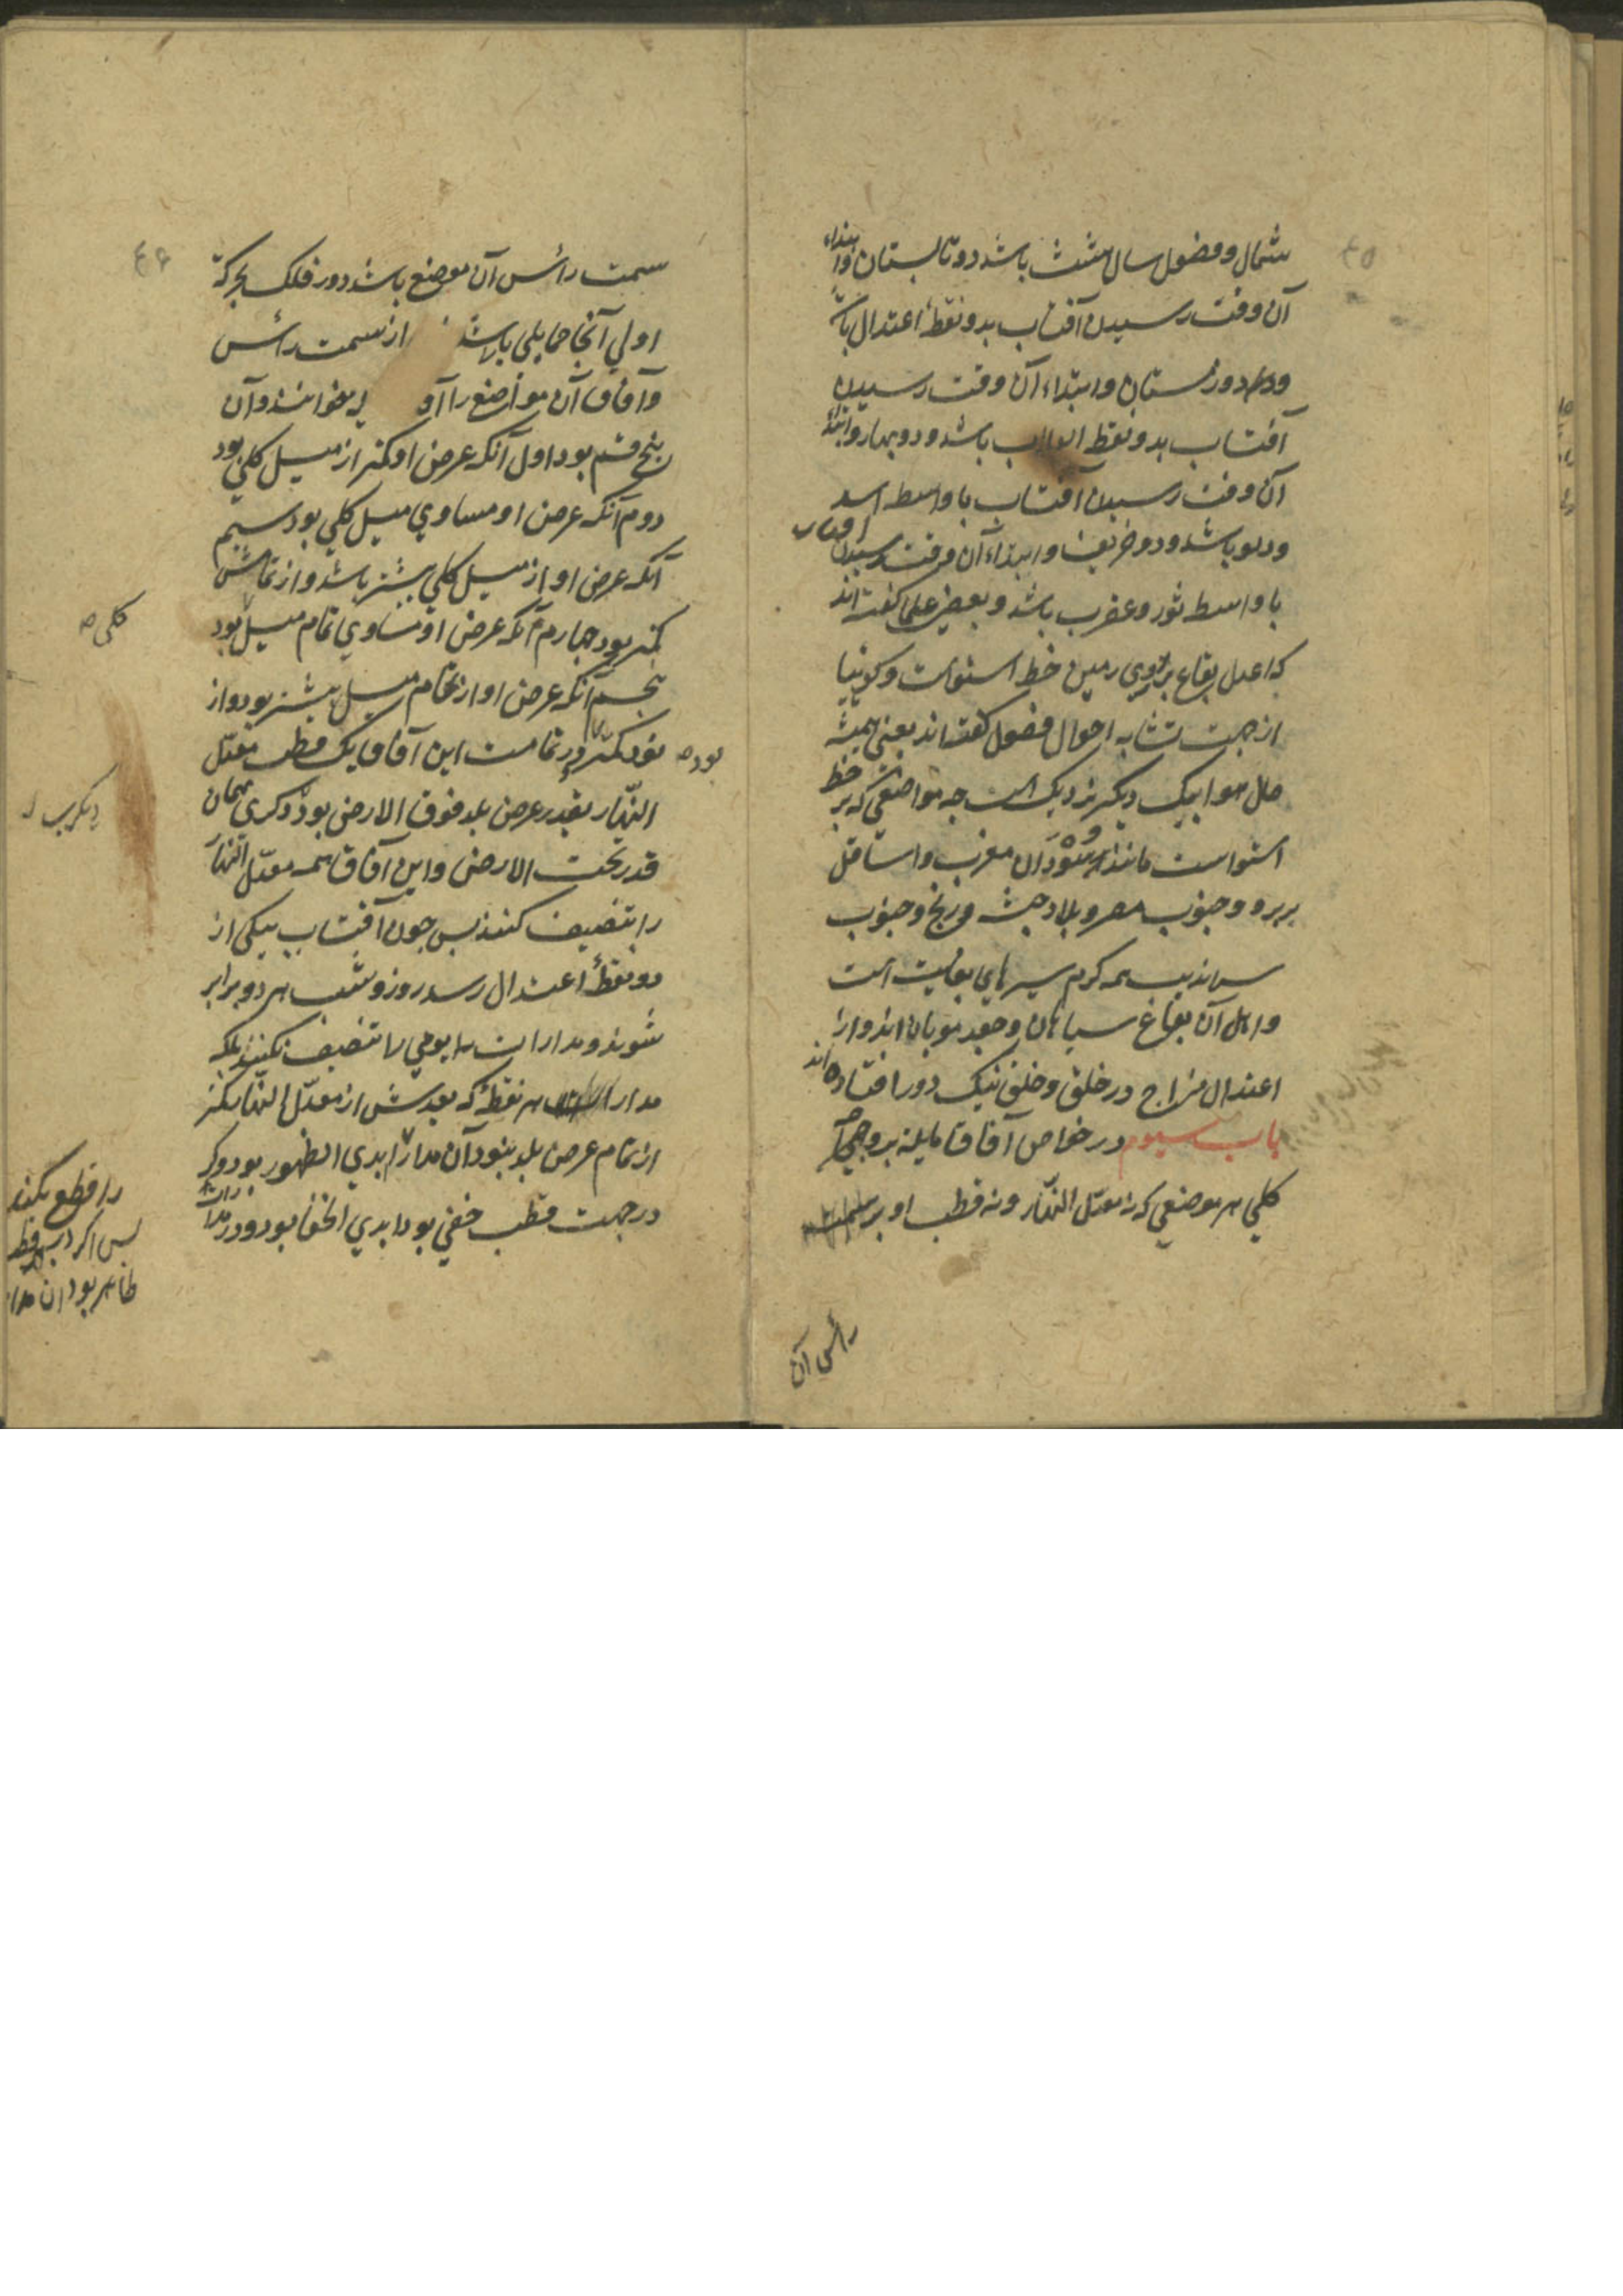 شمال و فصول سال هشت باشد دو تابستان و ابتداء
آن وقت رسیدن آفتاب بدو نقطهٔ اعتدال باشد
و دو زمستان و ابتداء آن وقت رسیدن
آفتاب بدو نقطه انقلاب باشد و دو بهار و ابتداء
آن وقت رسیدن آفتاب باواسط اسد
و دلو باشد و دو خریف و ابتداء آن وقت رسیدن آفتاب
باواسط ثور و عقرب باشد و بعضی علما کفته‌اند
که اعدل بقاع بر روی زمین خط استواست و کوییا
از جهت تشابه احوال فصول کفته‌اند یعنی همیشه
حال هوا بیک دیکر نزدیک است چه مواضعی که بر خط
استواست مانند سودان مغرب و اسافل
بربر و جنوب مصر و بلاد حبشه و زنج و جنوب
سراندیب همه کرم سیرهای بغایت است
و اهل آن بقاع سیاهان و جعد مویان‌اند و از
اعتدال مزاج در خلق و خلق نیک دور افتاده‌اند
باب سیوم در خواص آفاق مایله بر وجهی
کلی هر موضعی که نه معدّل النهّار و نه قطب او بر سمت
رأس آن
۴۶
سمت رأس آن موضع باشد دور فلک بحرکة
اولی آنجا حمایلی باشد از سمت رأس
و آفاق آن مواضع را آفا خوانند و آن
پنج قسم بود اول آنکه عرض او کمتر از میل کلی بود
دوم آنکه عرض او مساوی میل کلی بود سیم
آنکه عرض او از میل کلی بیشتر باشد و از تمامش
کمتر بود چهارم آنکه عرض او مساوی تمام میل بود
کلی
پنجم آنکه عرض او از تمام میل بیشتر بود و از
نود کمتر و در تمامت این آفاق یک قطب معدّل
بود
النهّار بقدر عرض بلد فوق الارض بود و دکری بهمان
قدر تحت الارض و این آفاق همه معدّل النهّار
را بتنصیف کنند پس چون آفتاب بیکی از
دو نقطهٔ اعتدال رسد روز و شب هر دو برابر
شوند و مدارات یومی را تنصیف نکنند بلکه
مدار هر نقطهٔ که بعدش از معدّل النهّار کمتر
از تمام عرض بلد بنود آن مدار ابدی الظهور بود و کر
در جهت قطب خفی بود ابدی الخفا بود و در مدارات
را قطع نکند
پس اکر در جهت قطب
ظاهر بود آن مدار